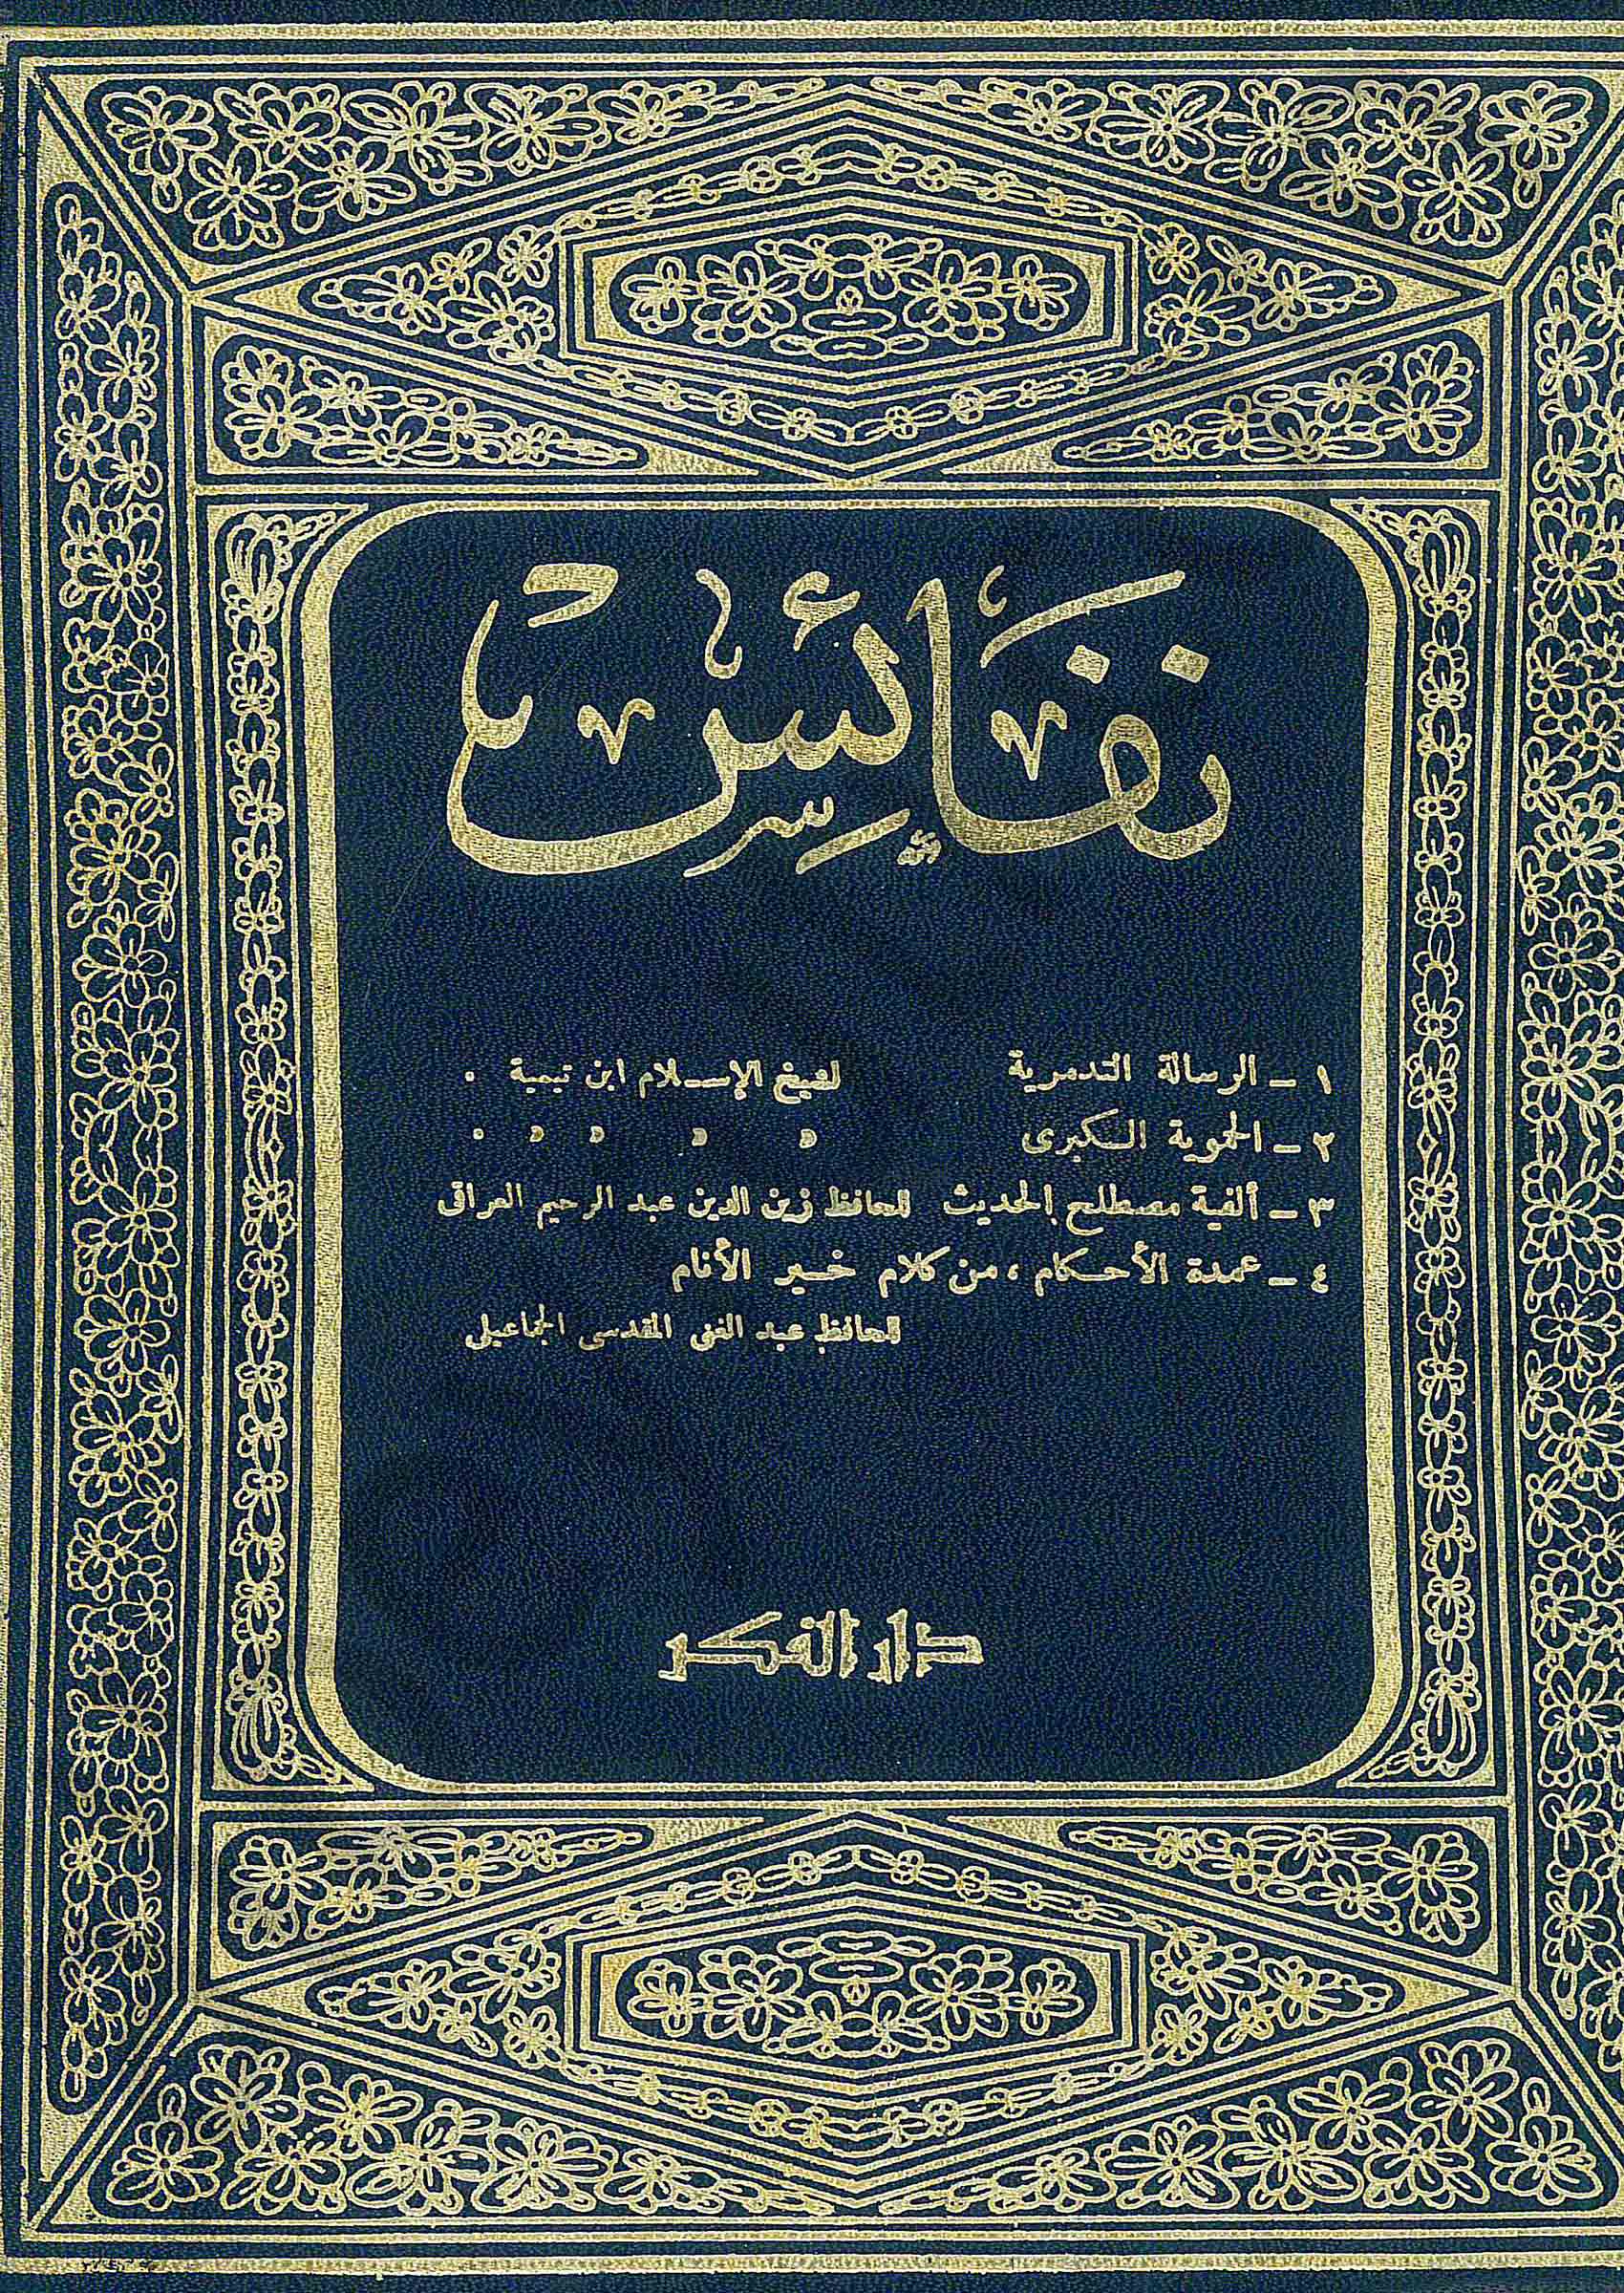 نفائس
١ – الرسالة التدمرية لشيخ الإسلام ابن تيمية .
٢ – الحموية الكبرى » » » » .
٣ – ألفية مصطلح الحديث للحافظ زين الدين عبد الرحيم العراقى
٤ – عمدة الأحكام ، من كلام خير الأنام
للحافظ عبد الغنى المقدسى الجماعيلى
دار الفكر